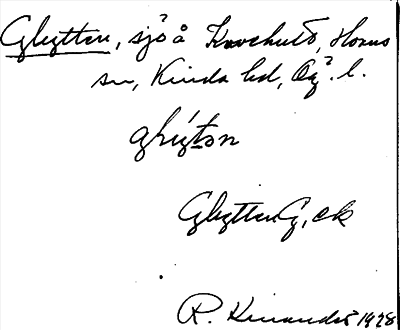 Glytten, sjö å Krokhult, Horns
sn, Kinda hd, Ög. l.
glýtən
Glytten G, ek
R. Kinander 1928